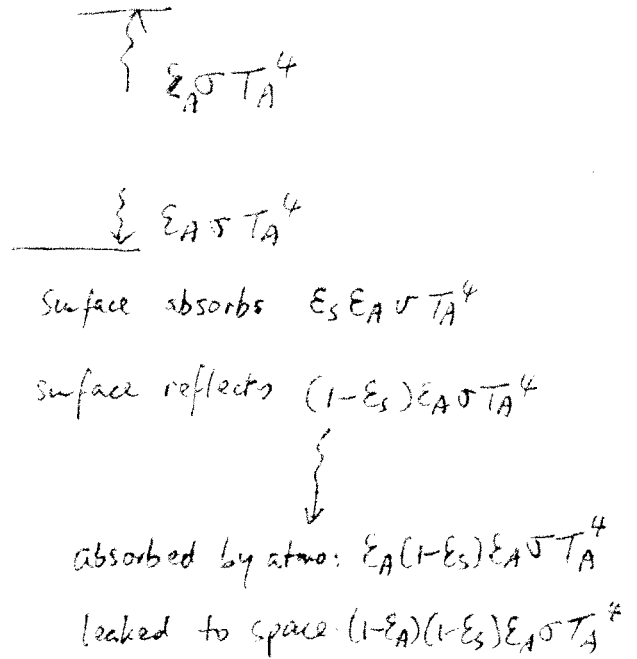 ε_A σ T_A^4
ε_A σ T_A^4
Surface absorbs ε_s ε_A σ T_A^4
surface reflects (1-ε_s) ε_A σ T_A^4
absorbed by atmo: ε_A (1-ε_s) ε_A σ T_A^4
leaked to space (1-ε_A)(1-ε_s) ε_A σ T_A^4